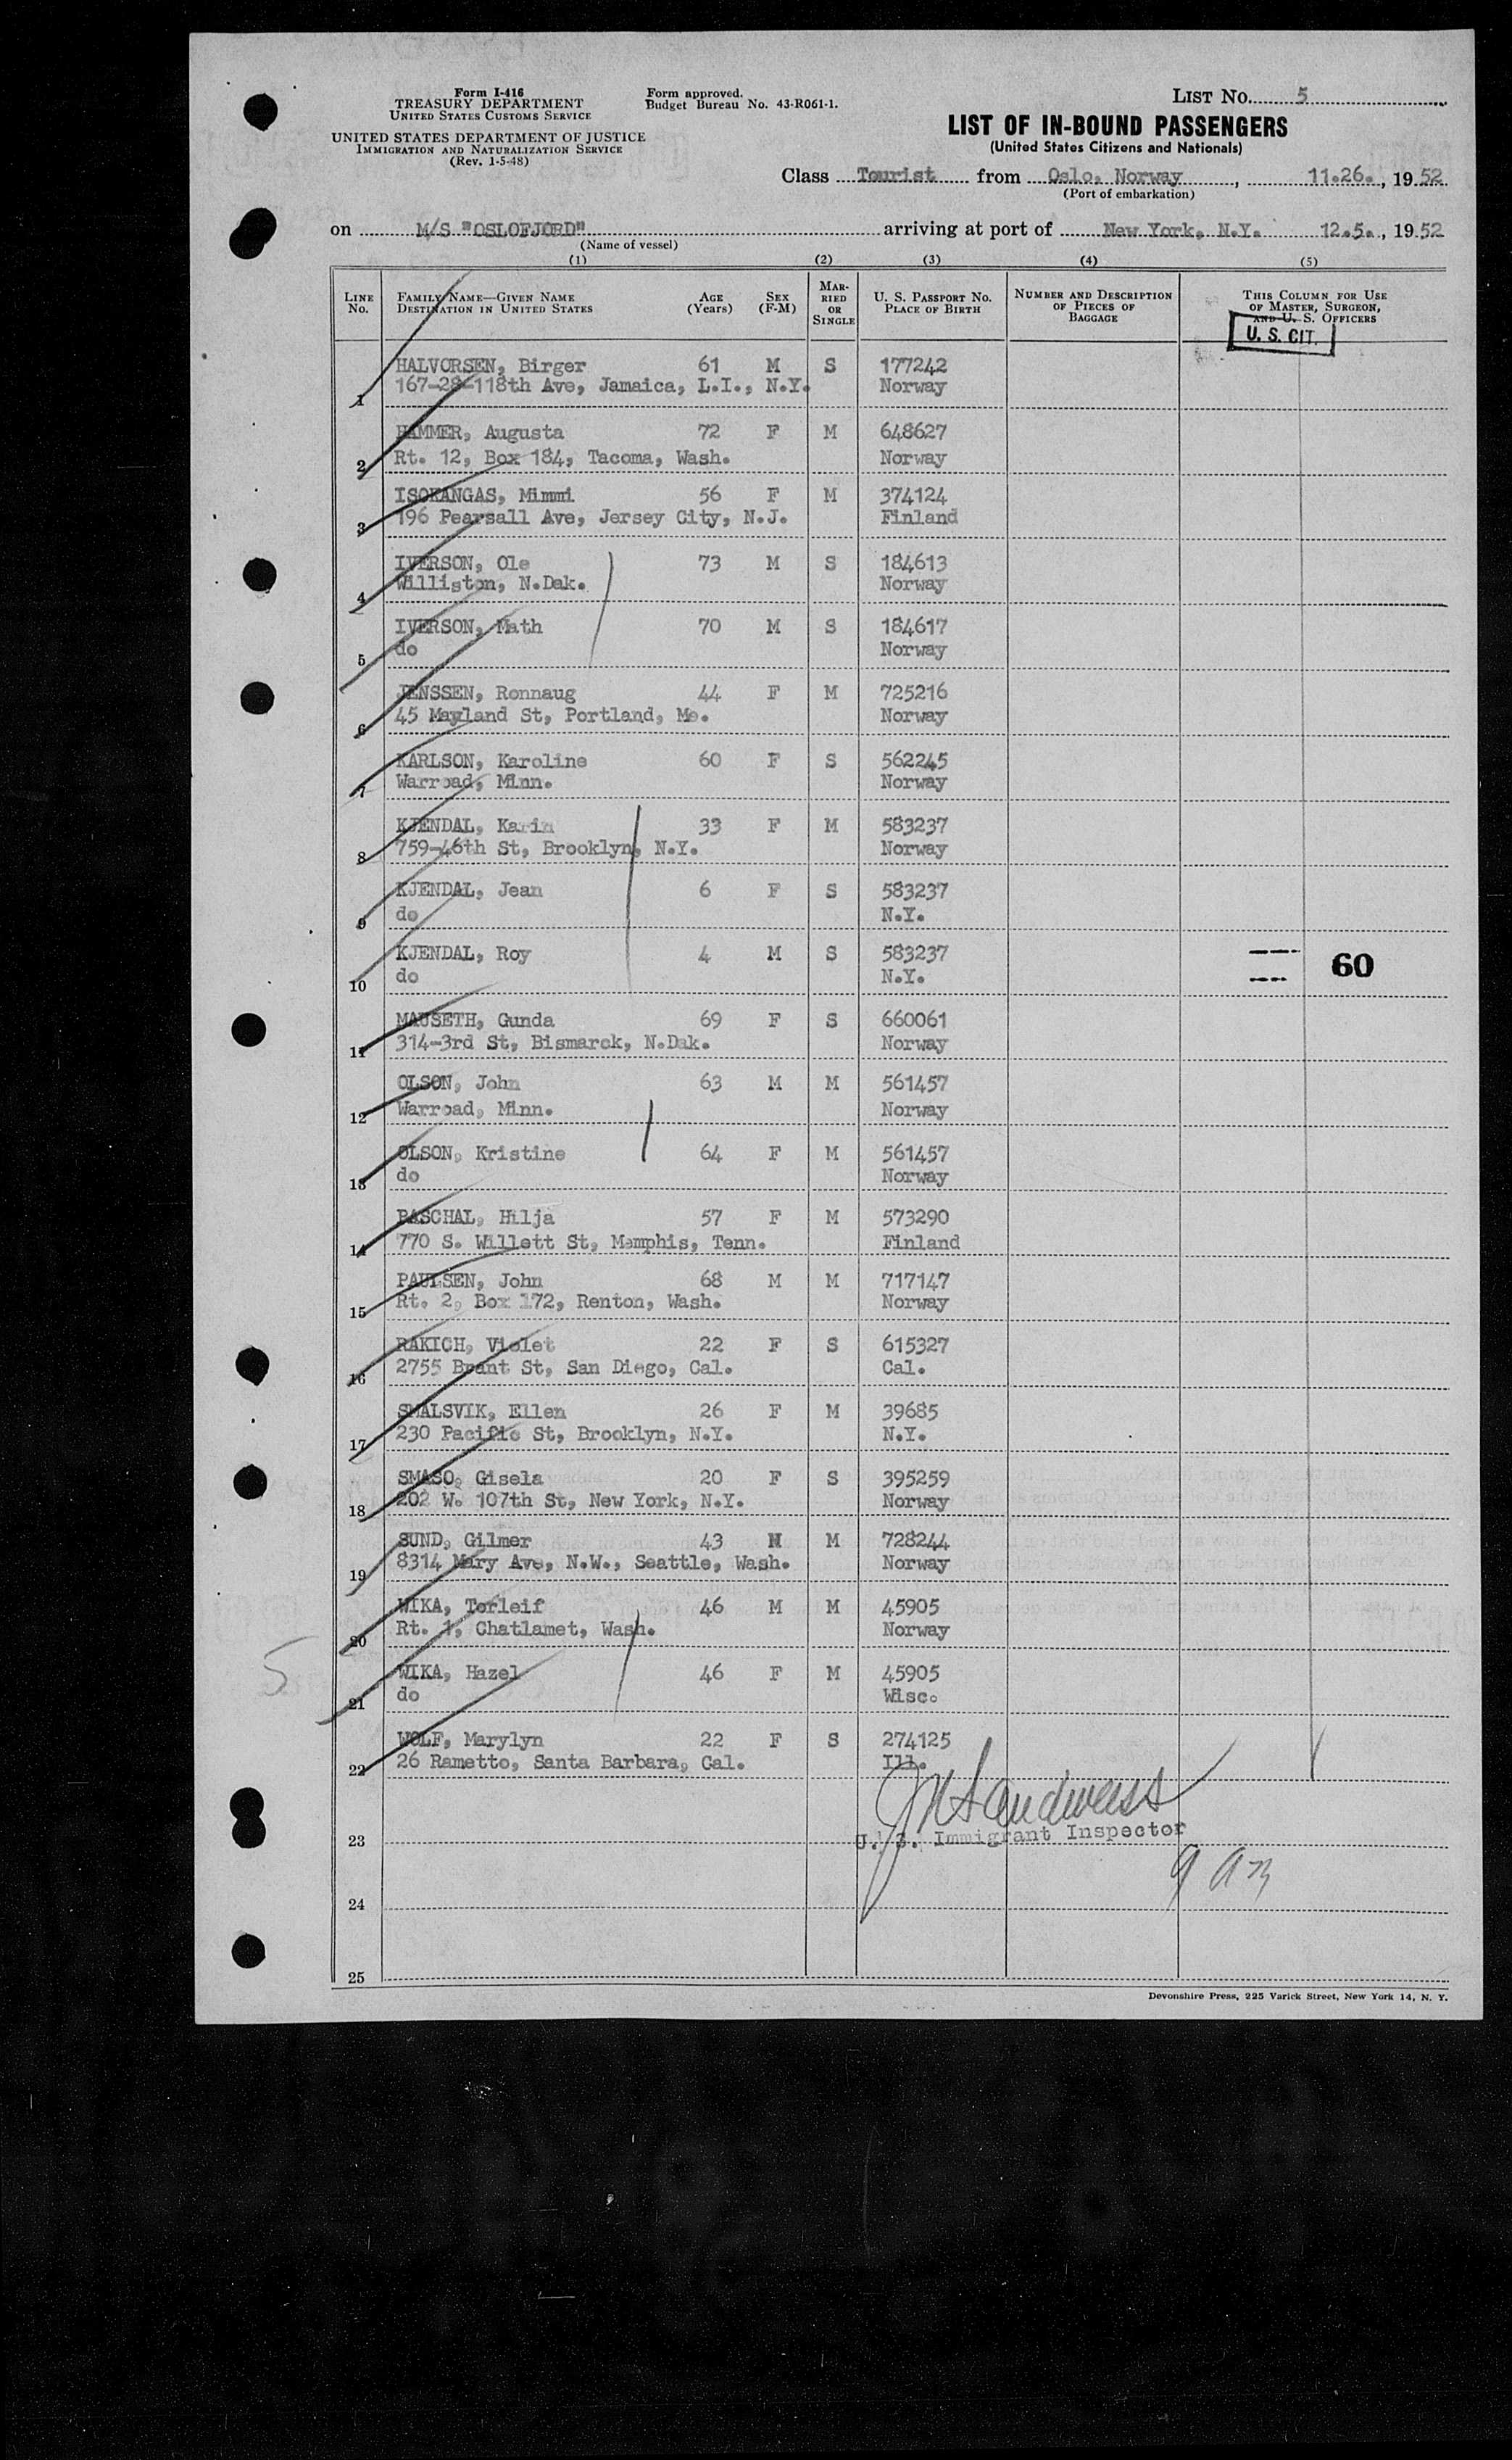 Form I-416
TREASURY DEPARTMENT
UNITED STATES CUSTOMS SERVICE
UNITED STATES DEPARTMENT OF JUSTICE
IMMIGRATION AND NATURALIZATION SERVICE
(Rev. 1-5-48)
Form approved.
Budget Bureau No. 43-R061-1.
LIST No. 5
LIST OF IN-BOUND PASSENGERS
(United States Citizens and Nationals)
Class Tourist from Oslo, Norway, 11.26., 1952
(Port of embarkation)
on M/S "OSLOFJORD" arriving at port of New York, N.Y. 12.5., 1952
(Name of vessel)
(1) (2) (3) (4) (5)
LINE No. FAMILY NAME—GIVEN NAME DESTINATION IN UNITED STATES AGE (Years) SEX (F-M) MARRIED OR SINGLE U. S. PASSPORT No. PLACE OF BIRTH NUMBER AND DESCRIPTION OF PIECES OF BAGGAGE THIS COLUMN FOR USE OF MASTER, SURGEON, AND U. S. OFFICERS
U. S. CIT.
HALVORSEN, Birger 61 M S 177242
1 167-28-118th Ave, Jamaica, L.I., N.Y. Norway
HAMMER, Augusta 72 F M 648627
2 Rt. 12, Box 184, Tacoma, Wash. Norway
ISOKANGAS, Mimmi 56 F M 374124
3 196 Pearsall Ave, Jersey City, N.J. Finland
IVERSON, Ole 73 M S 184613
4 Williston, N.Dak. Norway
IVERSON, Math 70 M S 184617
5 do Norway
JENSSEN, Ronnaug 44 F M 725216
6 45 Mayland St, Portland, Me. Norway
KARLSON, Karoline 60 F S 562245
7 Warroad, Minn. Norway
KJENDAL, Karin 33 F M 583237
8 759-46th St, Brooklyn, N.Y. Norway
KJENDAL, Jean 6 F S 583237
9 do N.Y.
KJENDAL, Roy 4 M S 583237
10 do N.Y.
60
MAUSETH, Gunda 69 F S 660061
11 314-3rd St, Bismarck, N.Dak. Norway
OLSON, John 63 M M 561457
12 Warroad, Minn. Norway
OLSON, Kristine 64 F M 561457
13 do Norway
PASCHAL, Hilja 57 F M 573290
14 770 S. Willett St, Memphis, Tenn. Finland
PAULSEN, John 68 M M 717147
15 Rt. 2, Box 172, Renton, Wash. Norway
RAKICH, Violet 22 F S 615327
16 2755 Brant St, San Diego, Cal. Cal.
SMALSVIK, Ellen 26 F M 39685
17 230 Pacific St, Brooklyn, N.Y. N.Y.
SMASO, Gisela 20 F S 395259
18 202 W. 107th St, New York, N.Y. Norway
SUND, Gilmer 43 M M 728244
19 8314 Mary Ave, N.W., Seattle, Wash. Norway
WIKA, Torleif 46 M M 45905
20 Rt. 1, Chatlamet, Wash. Norway
5
WIKA, Hazel 46 F M 45905
21 do Wisc.
WOLF, Marylyn 22 F S 274125
22 26 Rametto, Santa Barbara, Cal. Ill.
23 U. S. Immigrant Inspector
24
25
Devonshire Press, 225 Varick Street, New York 14, N. Y.